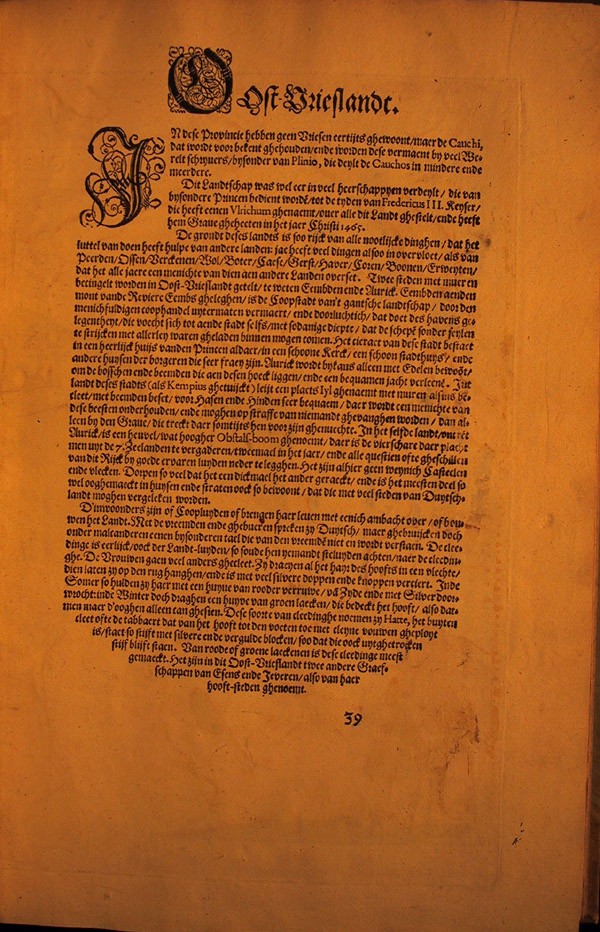 Oost-Vrieslandt.
IN dese Provincie hebben geen Vriesen eertijts ghewoont/maer de Cauchi,
dat wordt voor bekent ghehouden/ende worden dese vermaent by veel We-
relt schryvers/bysonder van Plinio, die deylt de Cauchos in mindere ende
meerdere.
Dit Landtschap was wel eer in veel heerschappyen verdeylt/ die van
bysondere Princen bedient wordē/tot de tyden van Fredericus III. Keyser/
die heeft eenen Vlrichum ghenaemt/over alle dit Landt ghestelt/ende heeft
hem Grave gheheeten in het jaer Christi 1465.
De grondt deses landts is soo rijck van alle nootlijcke dinghen/ dat het
luttel van doen heeft hulpe van andere landen: jae heeft veel dingen alsoo in overvloet/ als van
Peerden/Ossen/Verckenen/Wol/Boter/Caese/Gerst/Haver/Coren/Boonen/Erweyten/
dat het alle jaere een menichte van dien aen andere Landen overset. Twee steden met muren
beringelt worden in Oost-Vrieslandt getelt/ te weten Eembden ende Aurick. Eembden aenden
mont vande Reviere Eembs gheleghen/ is de Coopstadt van't gantsche landtschap/ door den
menichfuldigen coophandel uytermaten vermaert/ ende doorluchtich/ dat doet des havens ge-
legentheyt/die vocht sich tot aende stadt selfs/met sodanige diepte/ dat de schepē sonder seylen
te strijcken met allerley waren gheladen binnen mogen comen. Het cieraet van dese stadt bestaet
in een heerlijck huijs vanden Princen aldaer/in een schoone Kerck/ een schoon stadthuys/ ende
andere huysen der borgeren die seer fraey zijn. Aurick wordt by kans alleen met Edelen bewoōt/
om de bosschen ende beemden die aen desen hoeck liggen/ ende een bequamen jacht verleenē. Int
landt deses stadts (als Kempius ghetuijckt) leijt een plaets Iyl ghenaemt met muren alsins be-
cleet/met beemden beset/ voor Hasen ende Hinden seer bequaem/ daer wordt een menichte van
dese beesten onderhouden/ ende moghen op straffe van niemandt ghevanghen worden/ dan al-
leen by den Grave/ die treckt daer somtijts hen voor zijn ghenuchte. In het selfde landt/omtrēt
Aurick/is een heuvel/wat hoogher Obstalsboom ghenoemt/ daer is de vierschare daer plach-
men uyt de 7. Zeelanden te vergaderen/tweemael in het jaer/ ende alle questien ofte gheschillen
van dit Rijck by goede ervaren luyden neder te legghen. Het zijn alhier geen weynich Casteelen
ende vlecken. Dorpen so veel dat het een dickmael het ander geraeckt/ ende is het meesten deel so
wel oochmaeckt in huysen ende straten oock so bewoont/ dat die met veel steden van Duytsch-
landt moghen vergeleken worden.
D'inwoonders zijn of Coopluyden of brengen haer leven met eenich ambacht over/ of bou-
wen het Landt. Met de vreemden ende ghebueren spreken zy Duytsch/ maer ghebruijcken doch
onder malcanderen eenen bysonderen tael die van den vreemdē niet en wordt verstaen. De clee-
dinge is eerlijck/oock der Landt-luyden/ so soude hen yemandt steluyden achten/naer de cleedin-
ghe. De Vrouwen gaen veel anders ghecleet. Zy draeyen al het hayr des hoofts in een vlechte/
dien laten zy op den rug hanghen/ende is met veel silvere doppen ende knoppen verciert. Inde
Somer so hulden zy haer met een huyve van rooder verruwe/ vā Zyde ende met Silver door-
wrocht: inde Winter doch draghen een huyve van groen laecken/ die bedeckt het hooft/ also dat-
men maer d'ooghen alleen can ghesien. Dese soorte van cleedinghe noemen zy Hatte, het buyten
cleet ofte de tabbaert dat van het hooft tot den voeten toe met cleyne vouwen gheployt
is/staet so stijft met silvere ende vergulde blocken/ soo dat die oock uytghetrocken
stijf blijft staen. Van roode of groene laeckenen is dese cleedinge meest
gemaeckt. Het zijn in dit Oost-Vrieslandt twee andere Graef-
schappen van Esens ende Jeveren/also van haer
hooft-steden ghenoemt.
39